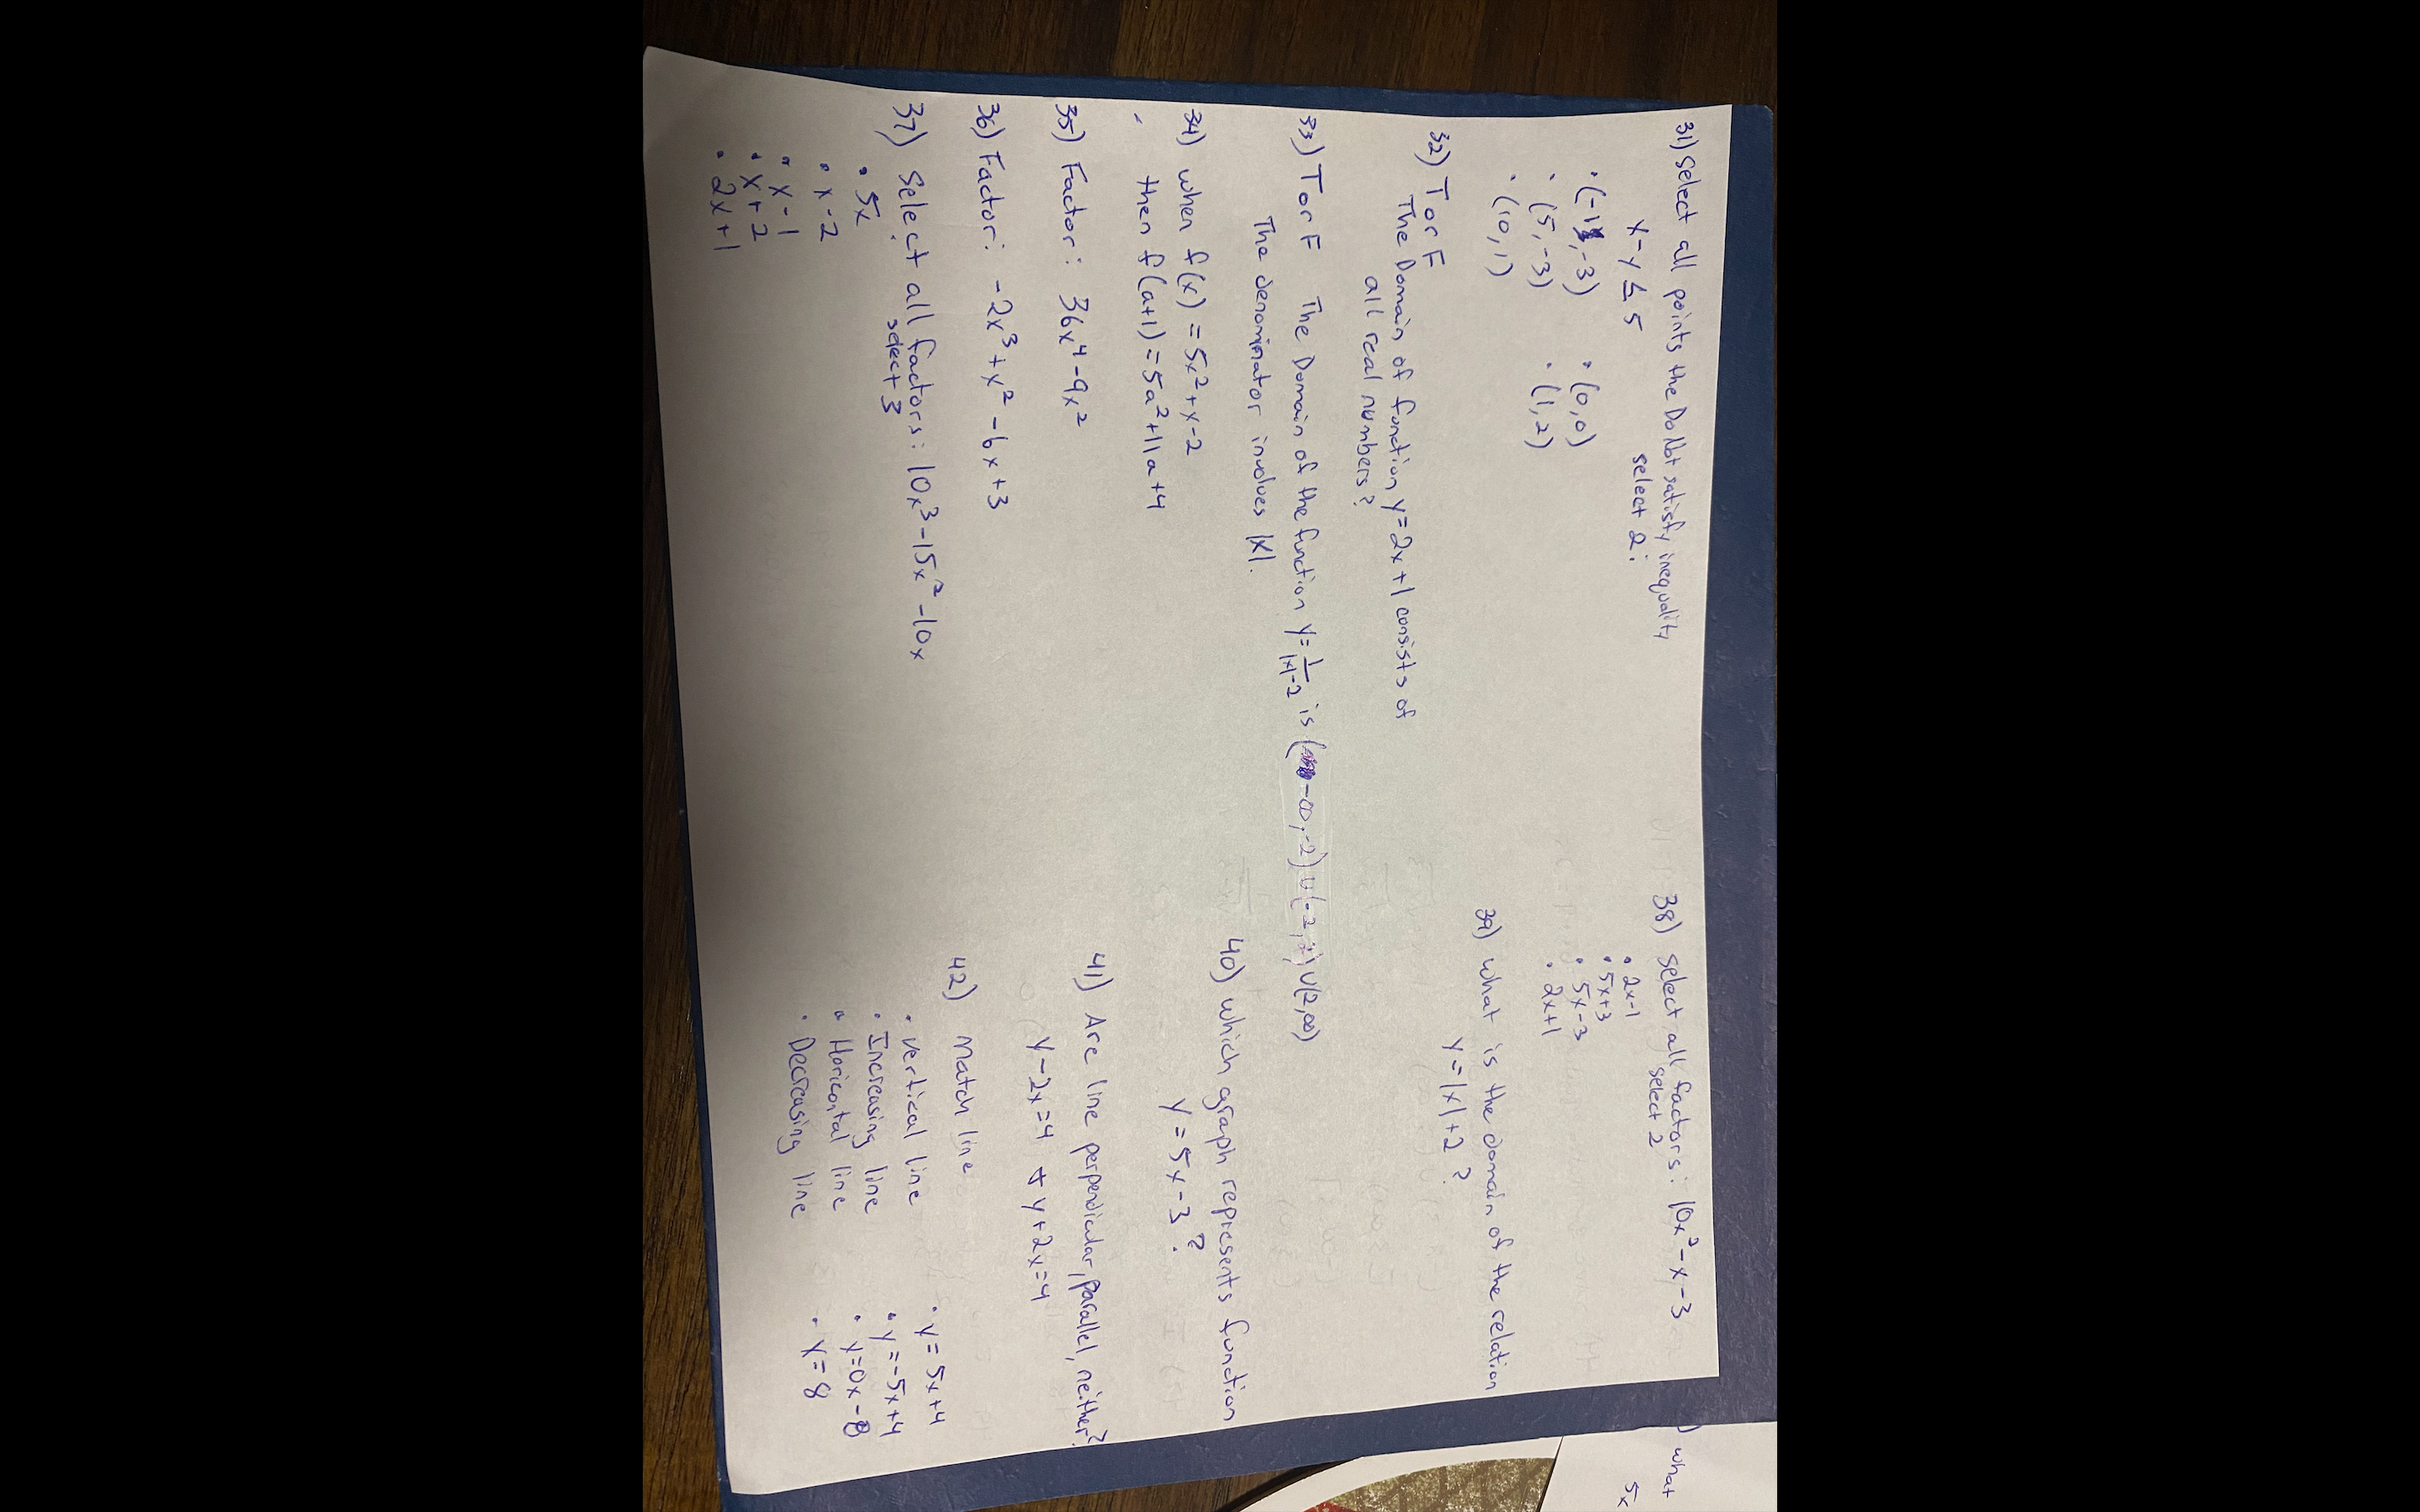 31) Select all points the Do Not satisfy inequality
x-y ≤ 5 select 2:
• (-1, -3) • (0,0)
• (5,-3) • (1,2)
• (10,1)
32) T or F
The Domain of function y=2x+1 consists of
all real numbers?
33) T or F The Domain of the function y= 1/(|x|-2) is (-∞,-2) U (-2,2) U (2,∞)
The denominator involves |x|.
34) when f(x) = 5x²+x-2
then f(a+1) = 5a²+11a+4
35) Factor: 36x⁴-9x²
36) Factor: -2x³+x²-6x+3
37) Select all factors: 10x³-15x²-10x
select 3
• 5x
• x-2
• x-1
• x+2
• 2x+1
38) select all factors: 10x²-x-3
select 2
• 2x-1
• 5x+3
• 5x-3
• 2x+1
39) what is the domain of the relation
y=|x|+2?
40) which graph represents function
y=5x-3?
41) Are line perpendicular, parallel, neither?
y-2x=4 & y+2x=4
42) Match line
• vertical line • y=5x+4
• Increasing line • y=-5x+4
• Horicontal line • y=0x-8
• Decreasing line • x=8
) what
5x